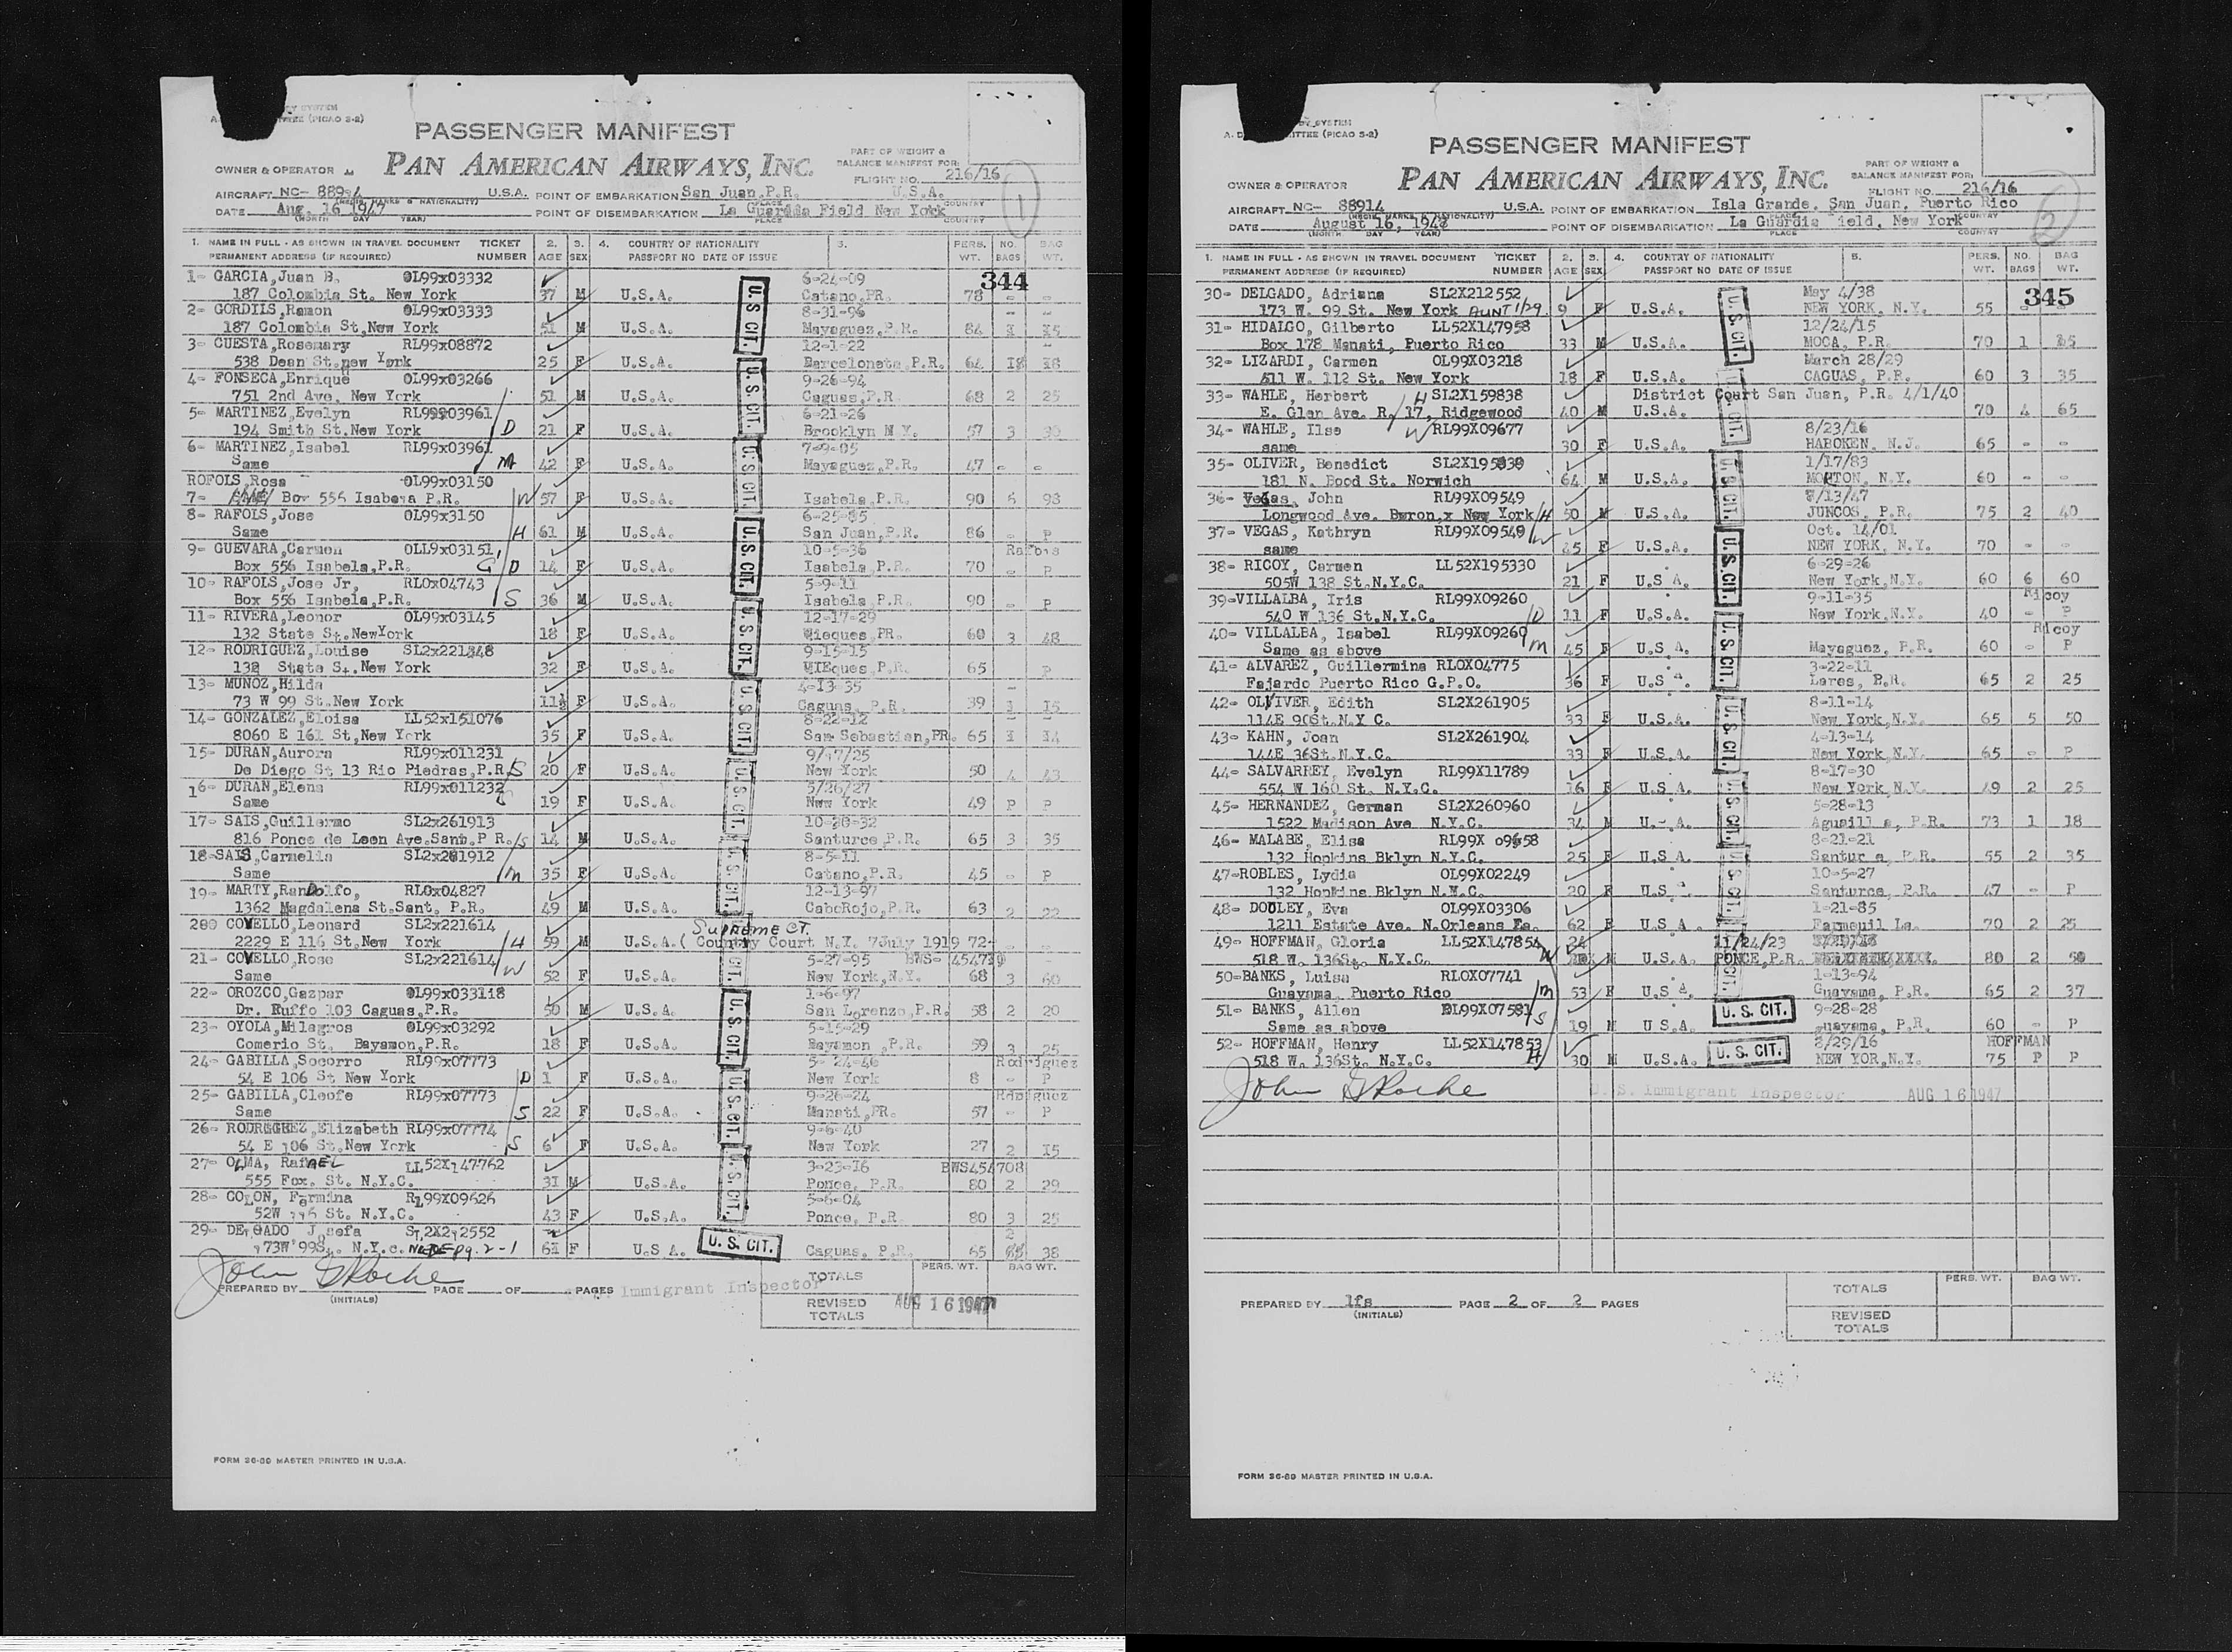 PASSENGER MANIFEST
OWNER & OPERATOR PAN AMERICAN AIRWAYS, INC.
PART OF WEIGHT &
BALANCE MANIFEST FOR:
FLIGHT NO. 216/16
AIRCRAFT NC- 88914 U.S.A. POINT OF EMBARKATION San Juan,P.R. U.S.A.
DATE Aug. 16 1947 POINT OF DISEMBARKATION La Guardia Field New York
1. NAME IN FULL - AS SHOWN IN TRAVEL DOCUMENT TICKET 2. 3. 4. COUNTRY OF NATIONALITY 3. PERS. NO. BAG
PERMANENT ADDRESS (IF REQUIRED) NUMBER AGE SEX PASSPORT NO DATE OF ISSUE WT. BAGS WT.
344
1- GARCIA,Juan B. OL99x03332 6-24-09
187 Colombia St. New York 37 M U.S.A. Catano,PR. 78 - -
2- GORDILS,Ramon OL99x03333 8-31-96
187 Colombia St,New York 51 M U.S.A. Mayaguez,P.R. 84
3- CUESTA,Rosemary RL99x08872 12-1-22
538 Dean St.new York 25 F U.S.A. Barceloneta,P.R. 64
4- FONSECA,Enrique OL99x03266 9-26-94
751 2nd Ave. New York 51 M U.S.A. Caguas,P.R. 68 2 25
5- MARTINEZ,Evelyn RL99x03961 6-21-26
194 Smith St.New York D 21 F U.S.A. Brooklyn N Y. 57 3 30
6- MARTINEZ,Isabel RL99x03961 7-9-05
Same M 42 F U.S.A. Mayaguez,P.R. 47 - -
ROFOLS,Rosa OL99x03150
7- Box 556 Isabela P.R. W 57 F U.S.A. Isabela,P.R. 90 6 98
8- RAFOLS,Jose OL99x3150 6-25-85
Same H 61 M U.S.A. San Juan,P.R. 86 - P
9- GUEVARA,Carmen OLL9x03151 10-5-36 Rafols
Box 556 Isabela,P.R. G D 14 F U.S.A. Isabela,P.R. 70 - P
10- RAFOLS,Jose Jr, RL0x04743 5-9-11
Box 556 Isabela,P.R. S 36 M U.S.A. Isabela,P.R. 90 - P
11- RIVERA,Leonor OL99x03145 12-17-29
132 State St.NewYork 18 F U.S.A. Vieques,PR. 60 3 48
12- RODRIGUEZ,Louise SL2x221348 9-15-15
132 State St.New York 32 F U.S.A. VIEques,P.R. 65 P
13- MUNOZ,Hilda 4-13 35
73 W 99 St.New York 11½ F U.S.A. Caguas, P.R. 39 1 15
14- GONZALEZ,Eloisa LL52x151076 8-22-12
8060 E 161 St,New York 35 F U.S.A. San Sebastian,PR. 65 1 14
15- DURAN,Aurora RL99x011231 9/17/25
De Diego St 13 Rio Piedras,P.R. S 20 F U.S.A. New York 50 4 43
16- DURAN,Elena RL99x011232 5/26/27
Same 19 F U.S.A. New York 49 P P
17- SAIS,Guillermo SL2x261913 10-20-32
816 Ponce de Leon Ave.Sant.P R. S 14 M U.S.A. Santurce,P.R. 65 3 35
18-SAIS,Carmelia SL2x261912 8-5-11
Same M 35 F U.S.A. Catano,P.R. 45 - P
19- MARTY,RanDolfo, RL0x04827 12-13-97
1362 Magdalena St.Sant. P.R. 49 M U.S.A. CaboRojo,P.R. 63 2 22
Supreme CT.
20 COVELLO,Leonard SL2x221614
2229 E 116 St,New York H 59 M U.S.A.( Country Court N.Y. 7July 1919 72- -
21- COVELLO,Rose SL2x221614 5-27-95 BWS-
Same W 52 F U.S.A. New York,N.Y. 68 3 60
22- OROZCO,Gazpar OL99x033118 1-6-97
Dr. Ruffo 103 Caguas,P.R. 50 M U.S.A. San Lorenzo,P.R. 58 2 20
23- OYOLA,Milagros OL99x03292 5-15-29
Comerio St. Bayamon,P.R. 18 F U.S.A. Bayamon ,P.R. 59 3 25
24- GABILLA,Socorro RL99x07773 5- 24-46 Rodriguez
54 E 106 St New York D 1 F U.S.A. New York 8 - P
25- GABILLA,Cleofe RL99x07773 9-26-24 Rodriguez
Same S 22 F U.S.A. Manati,PR. 57 - P
26- RODRIGUEZ,Elizabeth RL99x07774 9-6-40
54 E 106 St,New York S 6 F U.S.A. New York 27 2 15
27- OLMA, RafAEL LL52X147762 3-23-16 BWS454708
555 Fox. St. N.Y.C. 31 M U.S.A. Ponce, P.R. 80 2 29
28- COLON, Fermina RL99X09626 5-6-04
52W St. N.Y.C. 43 F U.S.A. Ponce, P.R 80 3 25
29- DELGADO Josefa SL2X212552
173W 99St. N.Y.C. NIECE pg. 2-1 61 F U.S A. Caguas, P.R. 65 2 38
U.S. CIT.
John Roche
PREPARED BY PAGE OF PAGES Immigrant Inspector
(INITIALS)
PERS. WT. BAG WT.
TOTALS
REVISED TOTALS
AUG 16 1947
FORM 36-89 MASTER PRINTED IN U.S.A.
PASSENGER MANIFEST
OWNER & OPERATOR PAN AMERICAN AIRWAYS, INC.
PART OF WEIGHT &
BALANCE MANIFEST FOR:
FLIGHT NO. 216/16
AIRCRAFT NC- 88914 U.S.A. POINT OF EMBARKATION Isla Grande, San Juan, Puerto Rico
DATE August 16, 194 POINT OF DISEMBARKATION La Guardia Field, New York
2
1. NAME IN FULL - AS SHOWN IN TRAVEL DOCUMENT TICKET 2. 3. 4. COUNTRY OF NATIONALITY 5. PERS. NO. BAG
PERMANENT ADDRESS (IF REQUIRED) NUMBER AGE SEX PASSPORT NO DATE OF ISSUE WT. BAGS WT.
345
30- DELGADO, Adriana SL2X212552 May 4/38
173 W. 99 St. New York AUNT 1/29 9 F U.S.A. NEW YORK, N.Y. 55 - -
31- HIDALGO, Gilberto LL52X147958 12/24/15
Box 178 Manati, Puerto Rico 33 M U.S.A. MOCA, P.R. 70 1
32- LIZARDI, Carmen OL99X03218 March 28/29
611 W. 112 St. New York 18 F U.S.A. CAGUAS, P.R. 60 3 35
33- WAHLE, Herbert H SL2X159838 District Court San Juan, P.R. 4/1/40
E. Glen Ave. R. 17, Ridgewood 40 M U.S.A. 70 4 65
34- WAHLE, Ilse W RL99X09677 8/23/16
same 30 F U.S.A. HABOKEN, N.J. 65 - -
35- OLIVER, Benedict SL2X195830 1/17/83
181 N. Bood St. Norwich 64 M U.S.A. MORTON, N.Y. 60 - -
36- Vegas, John RL99X09549 /13/47
Longwood Ave. Bwron,x New York H 50 M U.S.A. JUNCOS, P.R. 75 2 40
37- VEGAS, Kathryn RL99X09549 Oct. 14/01
same W 45 F U.S.A. NEW YORK, N.Y. 70 - -
38- RICOY, Carmen LL52X195330 6-29-26
505W 138 St.N.Y.C. 21 F U.S A. New York,N.Y. 60 6 60
39-VILLALBA, Iris RL99X09260 9-11-35 Ricoy
540 W 136 St.N.Y.C. D 11 F U.S.A. New York,N.Y. 40 - P
40- VILLALBA, Isabel RL99X09260 Ricoy
Same as above M 45 F U.S A. Mayaguez, P.R. 60 - P
41- ALVAREZ, Guillermina RLOX04775 3-22-11
Fajardo Puerto Rico G.P.O. 36 F U.S A. Lares, P.R. 65 2 25
42- OLIVER, Edith SL2X261905 8-11-14
114E 90St.N.Y C. 33 F U.S.A. New York,N.Y. 65 5 50
43- KAHN, Joan SL2X261904 4-13-14
144E 36St.N.Y.C. 33 F U.S.A. New York N.Y. 65 - P
44- SALVARREY, Evelyn RL99X11789 8-17-30
554 W 160 St. N.Y.C. 16 F U.S.A. New York N.Y. 49 2 25
45- HERNANDEZ, German SL2X260960 5-28-13
1522 Madison Ave N.Y.C. 34 M U.S.A. Aguadilla, P.R. 73 1 18
46- MALABE, Elisa RL99X 09658 8-21-21
132 Hopkins Bklyn N.Y.C. 25 F U.S A. Santurce, P.R. 55 2 35
47-ROBLES, Lydia OL99X02249 10-5-27
132 Hopkins Bklyn N.Y.C. 20 F U.S A. Santurce, P.R. 47 - P
48- DOOLEY, Eva OL99X03306 1-21-85
1211 Estate Ave. N.Orleans La. 62 F U.S A. Farmouil La. 70 2 25
49- HOFFMAN, Gloria LL52X147854 24 11/24/23
518 W. 136St. N.Y.C. W U.S.A. PONCE,P.R. 80 2 50
50-BANKS, Luisa RLOX07741 1-13-94
Guayama, Puerto Rico M 53 F U.S A. Guayama, P.R. 65 2 37
51- BANKS, Allen OL99X07581 9-28-28
Same as above S 19 M U S.A. guayama, P.R. 60 - P
U.S. CIT.
52- HOFFMAN, Henry LL52X147853 8/29/16 HOFFMAN
518 W. 136St. N.Y.C. H 30 M U.S.A. NEW YOR,N.Y. 75 P P
U.S. CIT.
John Roche U.S. Immigrant Inspector AUG 16 1947
PREPARED BY lfs PAGE 2 OF 2 PAGES
(INITIALS)
PERS. WT. BAG WT.
TOTALS
REVISED TOTALS
FORM 36-89 MASTER PRINTED IN U.S.A.